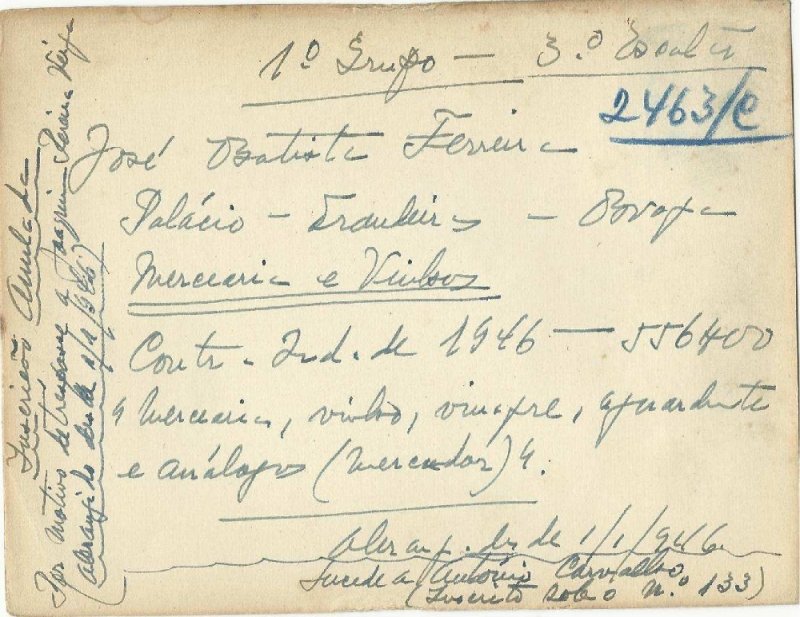 1º Grupo — 3.º Escalão
2463/C
José Batista Ferreira
Palácio - - 
Mercearia e Vinhos
Contr. Ind. de 1946 — 556$00
"Mercearia, vinho, vinagre, aguardente
e análogos (mercador)".
Abrang. des de 1/1/946
Sucede a António Carvalho
(Inscrito sob o N.º 133)
Inscrição Anulada
Por motivo de trespasse a Joaquim Pereira Veiga
(abrangido desde 1/1/946)